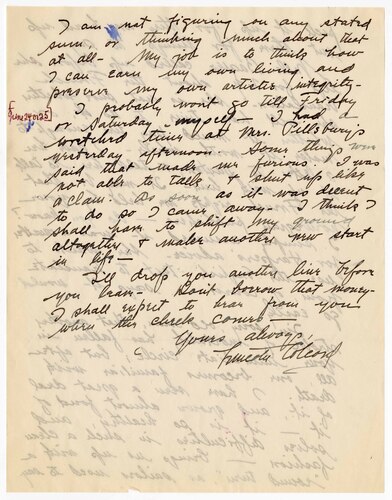 I am not figuring on any stated
sum, or thinking much about that
at all – My job is to think how
I can earn my own living and
preserve my own artistic integrity –
I probably won't go till Friday
or Saturday – myself – I had a
wretched time at Mrs. Pillsbury's
yesterday afternoon. Some things was
said that made me furious. I was
not able to talk, & shut up like
a clam. As soon as it was decent
to do so I came away – I think I
shall have to shift my ground
altogether & make another new start
in life –
I'll drop you another line before
you leave – Don't borrow that money –
I shall expect to hear from you
when the check comes –
Yours always
Lincoln Colcord